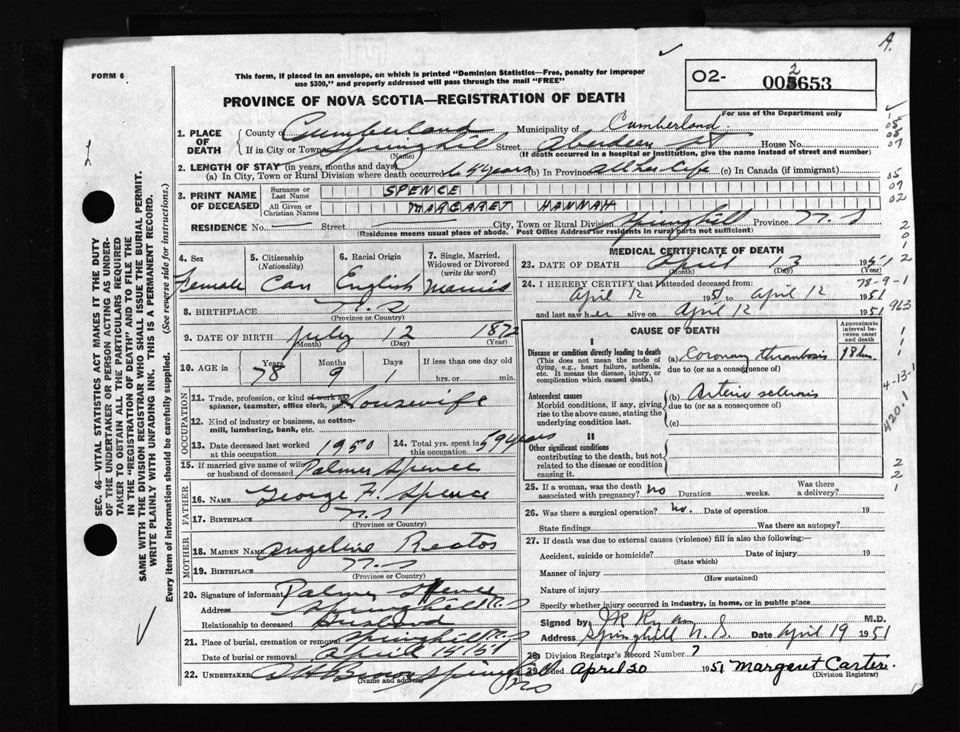 A.
FORM 6
This form, if placed in an envelope, on which is printed "Dominion Statistics—Free, penalty for improper
use $300," and properly addressed will pass through the mail "FREE"
PROVINCE OF NOVA SCOTIA—REGISTRATION OF DEATH
02- 2
005653
For use of the Department only
1. PLACE OF DEATH { County of Cumberland Municipality of Cumberland
If in City or Town Springhill Street Aberdeen St House No.
(Name) (If death occurred in a hospital or institution, give the name instead of street and number)
2. LENGTH OF STAY (in years, months and days)
(a) In City, Town or Rural Division where death occurred 44 years (b) In Province all her life (c) In Canada (if immigrant)
3. PRINT NAME OF DECEASED { Surname or Last Name SPENCE
All Given or Christian Names MARGARET HANNAH
RESIDENCE No. — Street — City, Town or Rural Division Springhill Province N.S
(Residence means usual place of abode. Post Office Address for residents in rural parts not sufficient)
4. Sex Female
5. Citizenship (Nationality) Can
6. Racial Origin English
7. Single, Married, Widowed or Divorced (write the word) Married
8. BIRTHPLACE N.S
(Province or Country)
9. DATE OF BIRTH July 12 1872
(Month) (Day) (Year)
10. AGE in { Years 78 Months 9 Days 1 If less than one day old
hrs. or min.
OCCUPATION
11. Trade, profession, or kind of work as spinner, teamster, office clerk, Housewife
12. Kind of industry or business, as cotton-mill, lumbering, bank, etc.
13. Date deceased last worked at this occupation 1950
14. Total yrs. spent in this occupation 59 years
15. If married give name of wife or husband of deceased Palmer Spence
FATHER
16. NAME George F. Spence
17. BIRTHPLACE N.S
(Province or Country)
MOTHER
18. MAIDEN NAME Angeline
19. BIRTHPLACE N.S
(Province or Country)
20. Signature of informant Palmer Spence
Address Springhill N.S
Relationship to deceased Husband
21. Place of burial, cremation or removal Springhill N.S
Date of burial or removal April 15/51
22. UNDERTAKER Brown Springhill
NS
(Name and address)
MEDICAL CERTIFICATE OF DEATH
23. DATE OF DEATH April 13 1951
(Month) (Day) (Year)
24. I HEREBY CERTIFY that I attended deceased from:
April 12 1951 to April 12 1951
and last saw her alive on April 12 1951
CAUSE OF DEATH
Approximate interval between onset and death
I
Disease or condition directly leading to death
(This does not mean the mode of dying, e.g., heart failure, asthenia, etc. It means the disease, injury, or complication which caused death.)
(a) Coronary thrombosis 18 hrs.
due to (or as a consequence of)
Antecedent causes
Morbid conditions, if any, giving rise to the above cause, stating the underlying condition last.
(b) Arterio sclerosis
due to (or as a consequence of)
(c)
II
Other significant conditions
contributing to the death, but not related to the disease or condition causing it.
25. If a woman, was the death associated with pregnancy? no Duration weeks. Was there a delivery?
26. Was there a surgical operation? no. Date of operation 19
State findings Was there an autopsy?
27. If death was due to external causes (violence) fill in also the following:—
Accident, suicide or homicide? Date of injury 19
(State which)
Manner of injury
(How sustained)
Nature of injury
Specify whether injury occurred in industry, in home, or in public place
Signed by M.D.
Address Springhill N.S. Date April 19 1951
28. Division Registrar's Record Number 7
29. Filed April 20 1951 Margaret Carter.
(Division Registrar)
SEC. 46—VITAL STATISTICS ACT MAKES IT THE DUTY
OF THE UNDERTAKER OR PERSON ACTING AS UNDER-
TAKER TO OBTAIN ALL THE PARTICULARS REQUIRED
IN THE "REGISTRATION OF DEATH" AND TO FILE THE
SAME WITH THE DIVISION REGISTRAR WHO SHALL ISSUE THE BURIAL PERMIT.
WRITE PLAINLY WITH UNFADING INK. THIS IS A PERMANENT RECORD.
Every item of information should be carefully supplied. (See reverse side for instructions.)
05
08
07
05
09
02
2
0
1
2
78-9-1
963
1
1
1
1
4-13-1
420.1
2
2
1